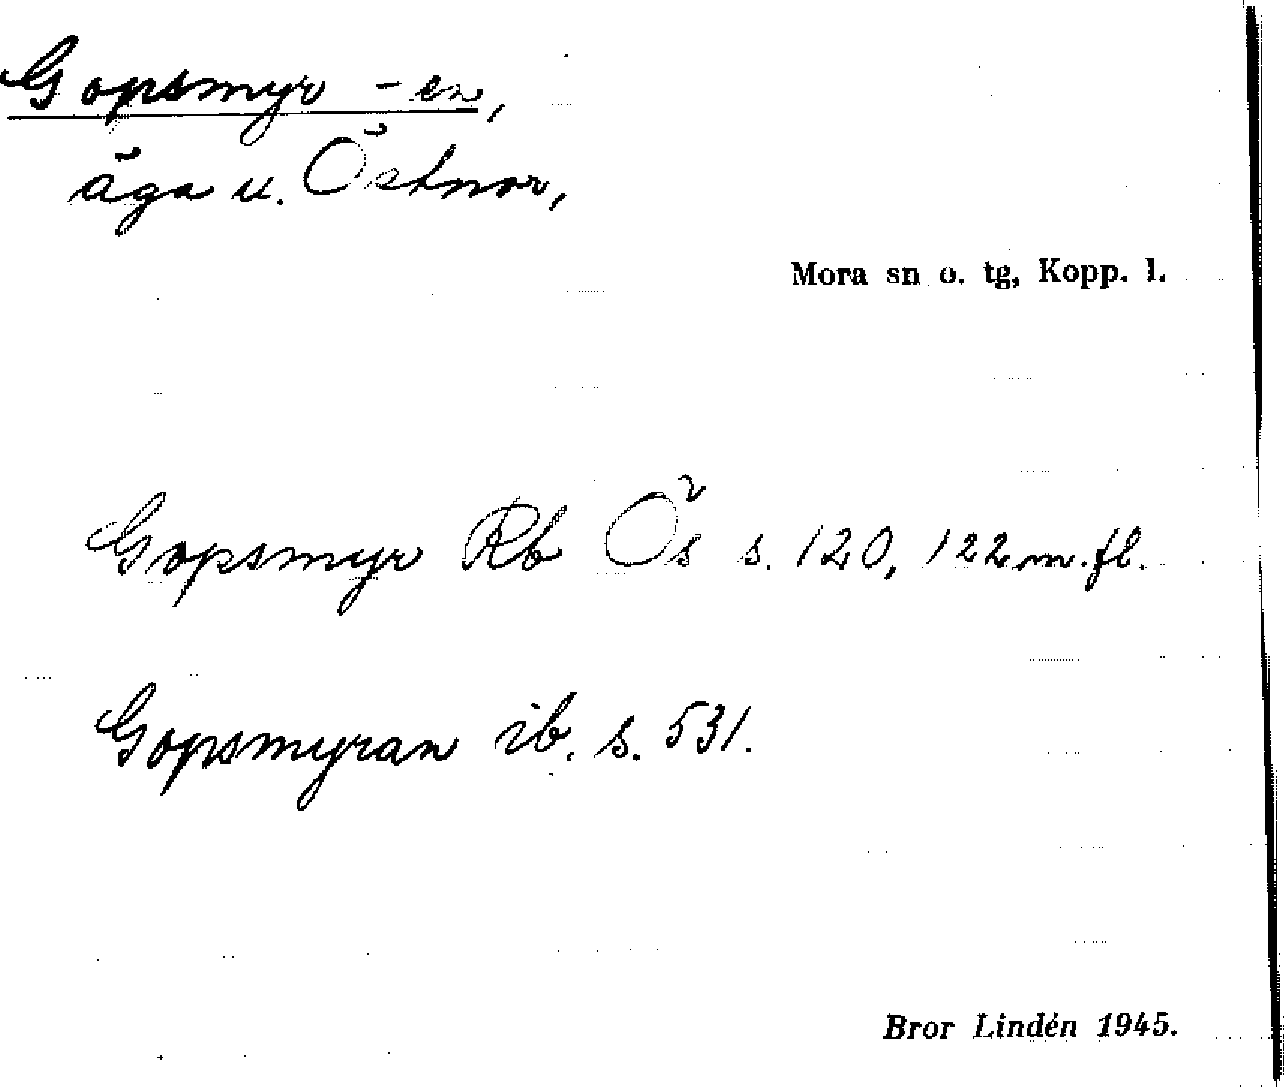 Gopsmyr -en,
äga u. Östnor,
Mora sn o. tg, Kopp. l.
Gopsmyr Rb Ös s. 120, 122 m.fl.
Gopsmyran ib. s. 531.
Bror Lindén 1945.